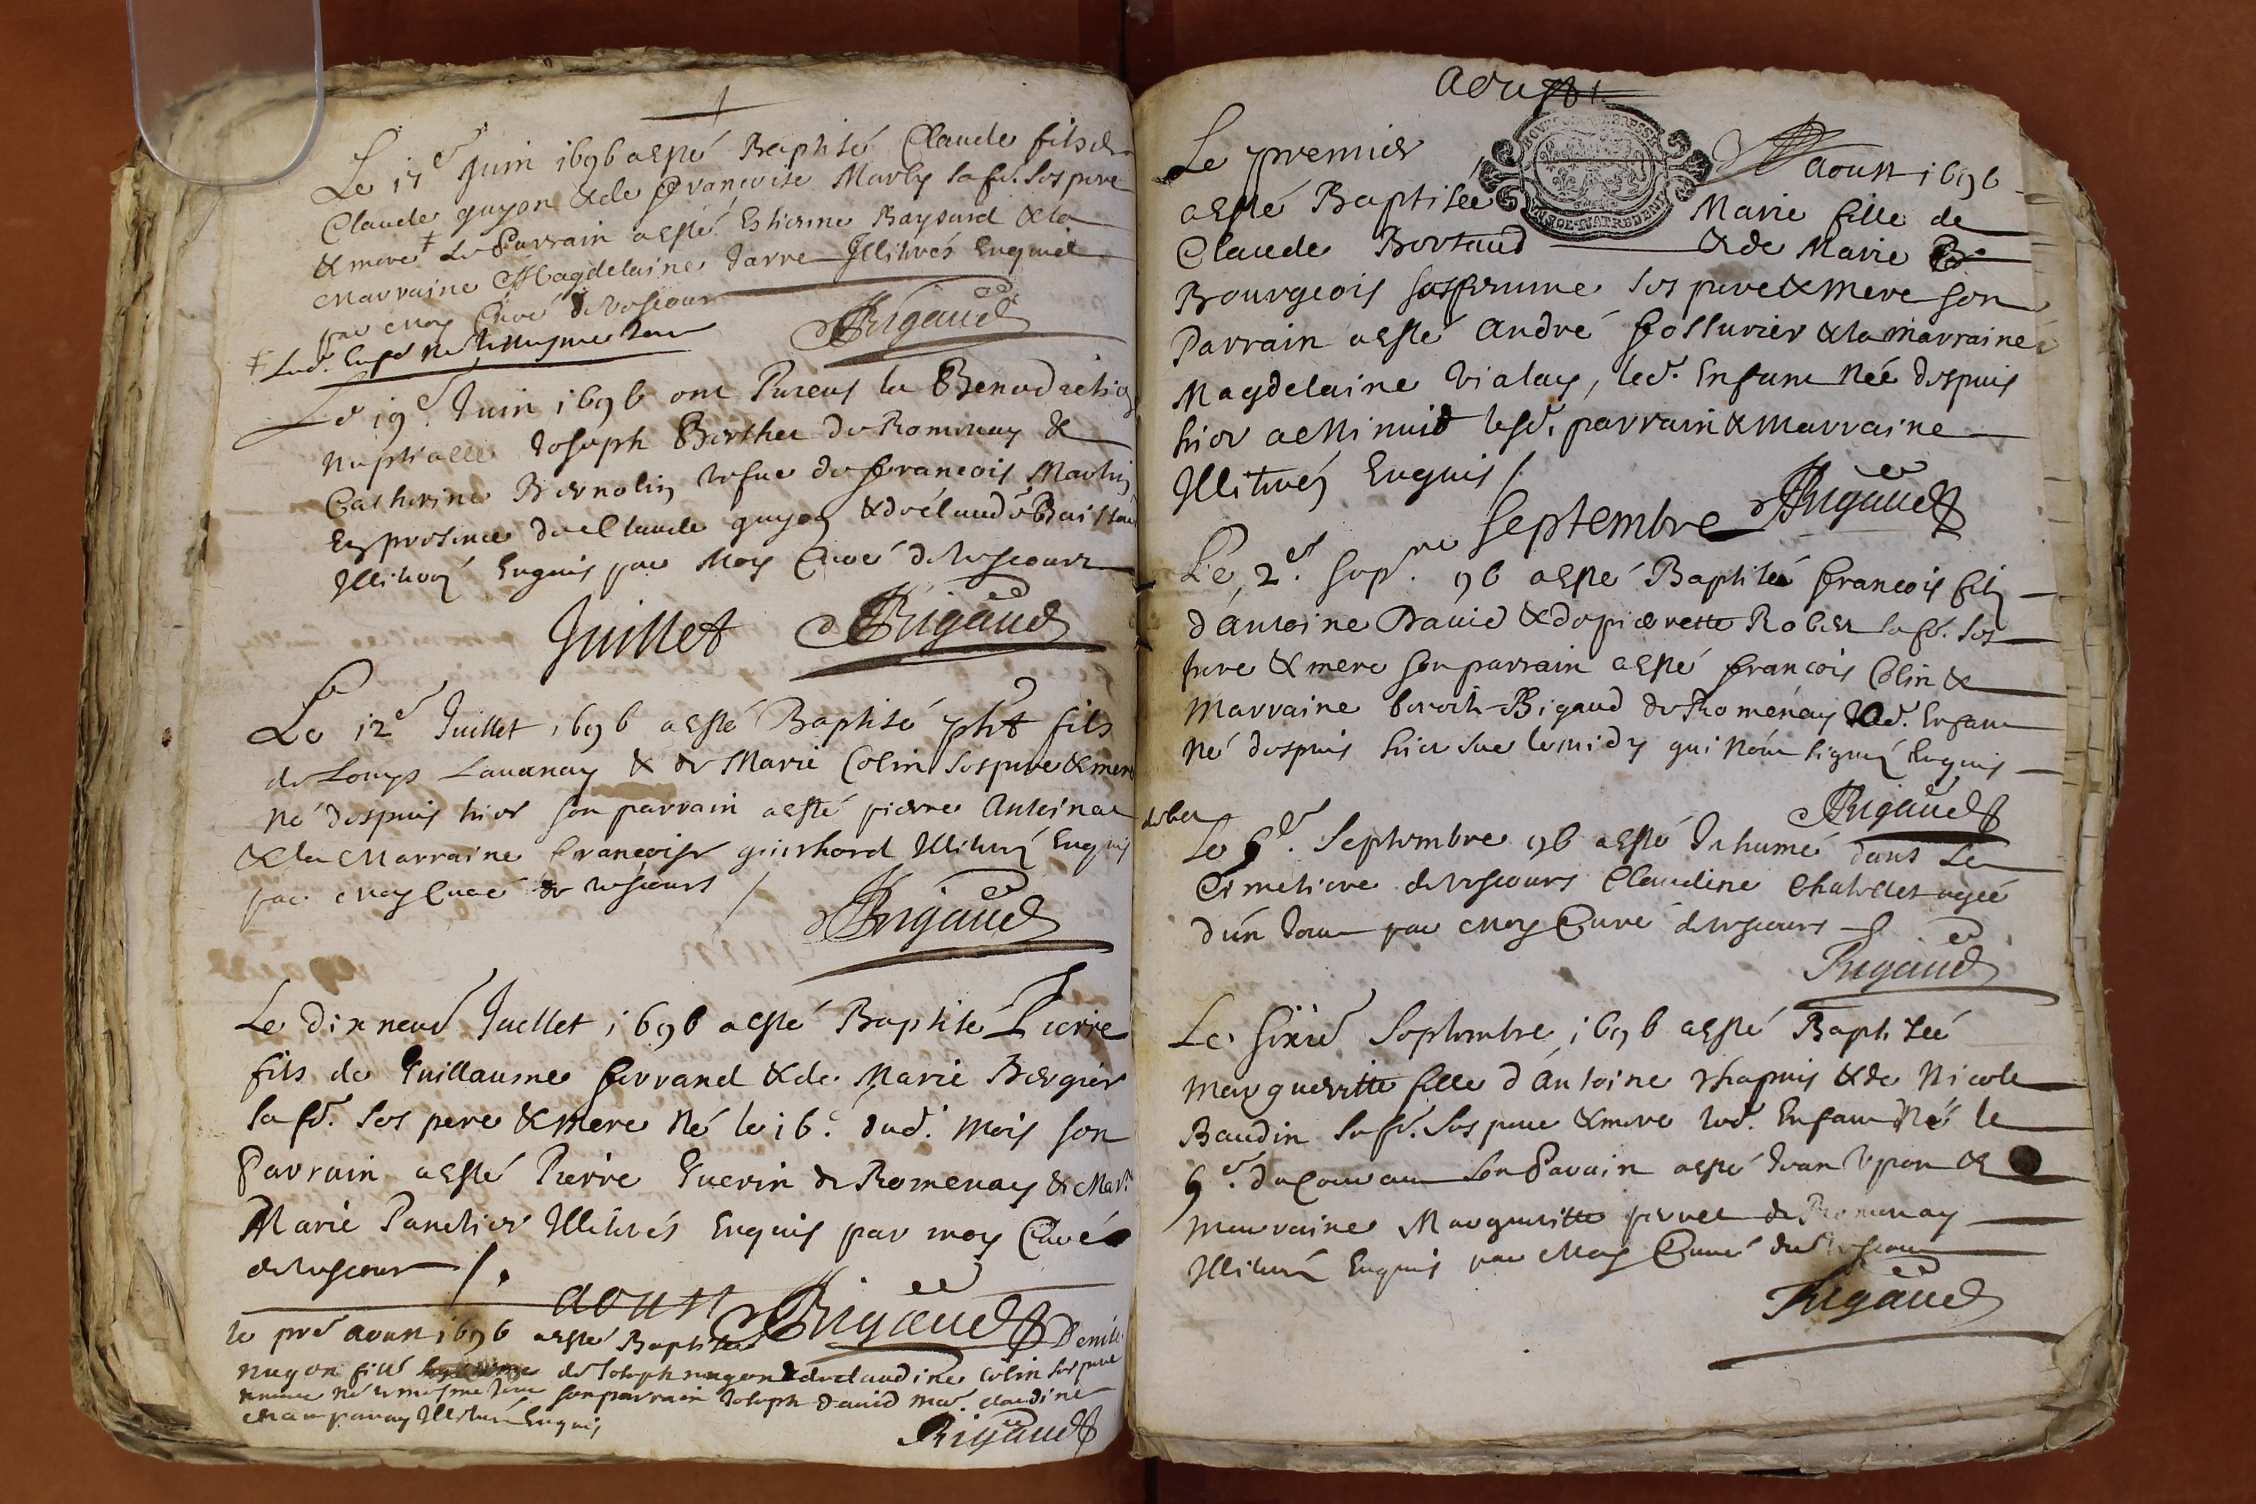 Le 17e Juin 1696 a esté Baptisé Claude fils de
Claude guyon & de Françoise Marly sa fe. ses pere
& mere + Le Parrain a esté Estienne Baysard & la
Marraine Magdelaine Jarre Illiterés Enquis
par Moy Curé de vescours
Rigaud
+ Led. Enft. Né le mesme Jour
Le 19e Juin 1696 ont Pareus la Benediction
Nuptialle Joseph Berthet de Romenay &
Catherine Bernolin vefue de francois Martin
En presence de Claude guyon & de Claude
Illiterés Enquis par Moy Curé de vescours
Rigaud
Juillet
Le 12e Juillet 1696 a esté Baptisé phlt fils
de Louys Lauanay & de Marie Colin ses pere & mere
Né despuis hier son parrain a esté pierre Antoinat
& la Marraine francoise guichard Illiterés Enquis
par Moy Curé de vescours /
Rigaud
Le dix neuf Juillet 1696 a esté Baptisé Pierre
fils de Guillaume ferrand & de Marie Bergier
sa fe. ses pere & mere Né le 16e. dud. mois son
Parrain a esté Pierre Guerin de Romenay & Mar.
Marie Panetier Illiterés Enquis par moy Curé
de vescours /.
aoust
Rigaud
le pre aoust 1696 a esté Baptisée Denise
nugon fille de Joseph nugon & de claudine Colin ses pere
& mere né le mesme Jour son parrain Joseph dauid mar. claudine
Illiterés Enquis
Rigaud
aoust
Le premier aoust 1696
a esté Baptisée Marie fille de
Claude Bertaud & de Marie
Bourgeois sa femme ses pere & mere son
Parrain a esté André fossurier & la marraine
Magdelaine Vialay, led. Enfant Née despuis
hier a Minuit lesd. parrain & marraine
Illiterés Enquis /
Rigaud
septembre
Le 2e. sepre. 96 a esté Baptisé francois fils
d'Antoine Dauid & de pierrette Rober sa fe. ses
pere & mere son parrain a esté francois Colin &
Marraine benoite Rigaud de Romenay led. Enfant
Né despuis hier sur le midy qui n'ont signé Enquis
Rigaud
Le 5e. Septembre 96 a esté Inhumé dans Le
Cimetiere de vescours Claudine Chatellet agée
d'un Jour par Moy Curé de vescours
Rigaud
Le sixie Septembre 1696 a esté Baptisée
Margueritte fille d'Antoine Chapuis & de Nicole
Baudin sa fe. ses pere & mere led. Enfant Né le
5e. du Courant son Parrain a esté Jean &
Marraine Margueritte perret de Romenay
Illiterés Enquis par Moy Curé de vescours
Rigaud